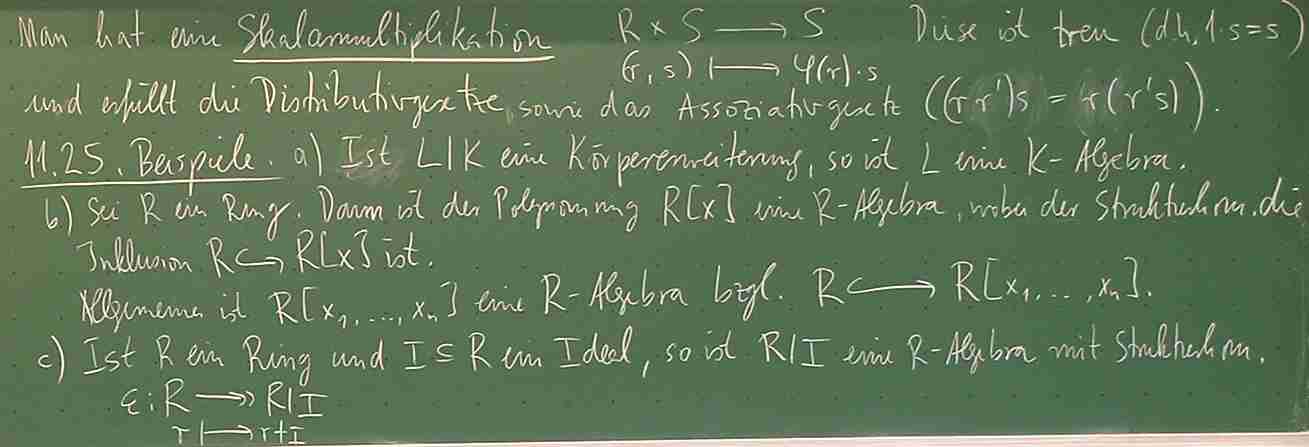 Man hat eine Skalarmultiplikation R × S ⟶ S Diese ist treu (d.h. 1·s=s)
(r, s) ⟼ φ(r)·s
und erfüllt die Distributivgesetze, sowie das Assoziativgesetz ((r r')s = r(r's)).
11.25. Beispiele. a) Ist L|K eine Körpererweiterung, so ist L eine K-Algebra.
b) Sei R ein Ring. Dann ist der Polynomring R[x] eine R-Algebra, wobei der Strukturhom. die
Inklusion R ↪ R[x] ist.
Allgemeiner ist R[x₁, ..., xₙ] eine R-Algebra bzgl. R ↪ R[x₁, ..., xₙ].
c) Ist R ein Ring und I ⊆ R ein Ideal, so ist R/I eine R-Algebra mit Strukturhom.
ε: R ↠ R/I
r ⟼ r+I